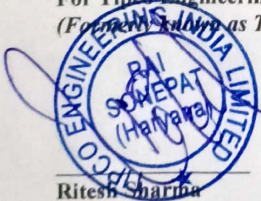 For Tipco Engineering
(Formerly known as T
TIPCO ENGINEERING INDIA LIMITED
RAI
SONEPAT
(Haryana)
Ritesh Sharma